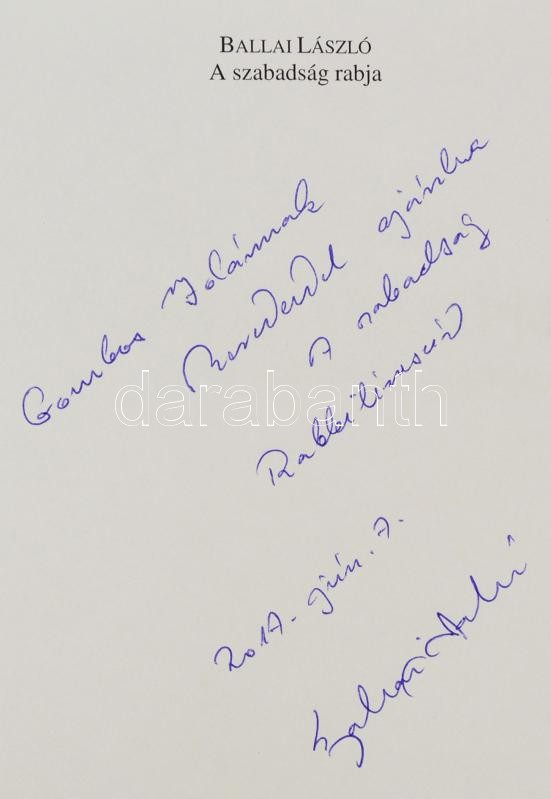 BALLAI LÁSZLÓ
A szabadság rabja
Gombos Jolánnak
szeretettel ajánlva
A szabadság
darabanth
2017. jún. 7.